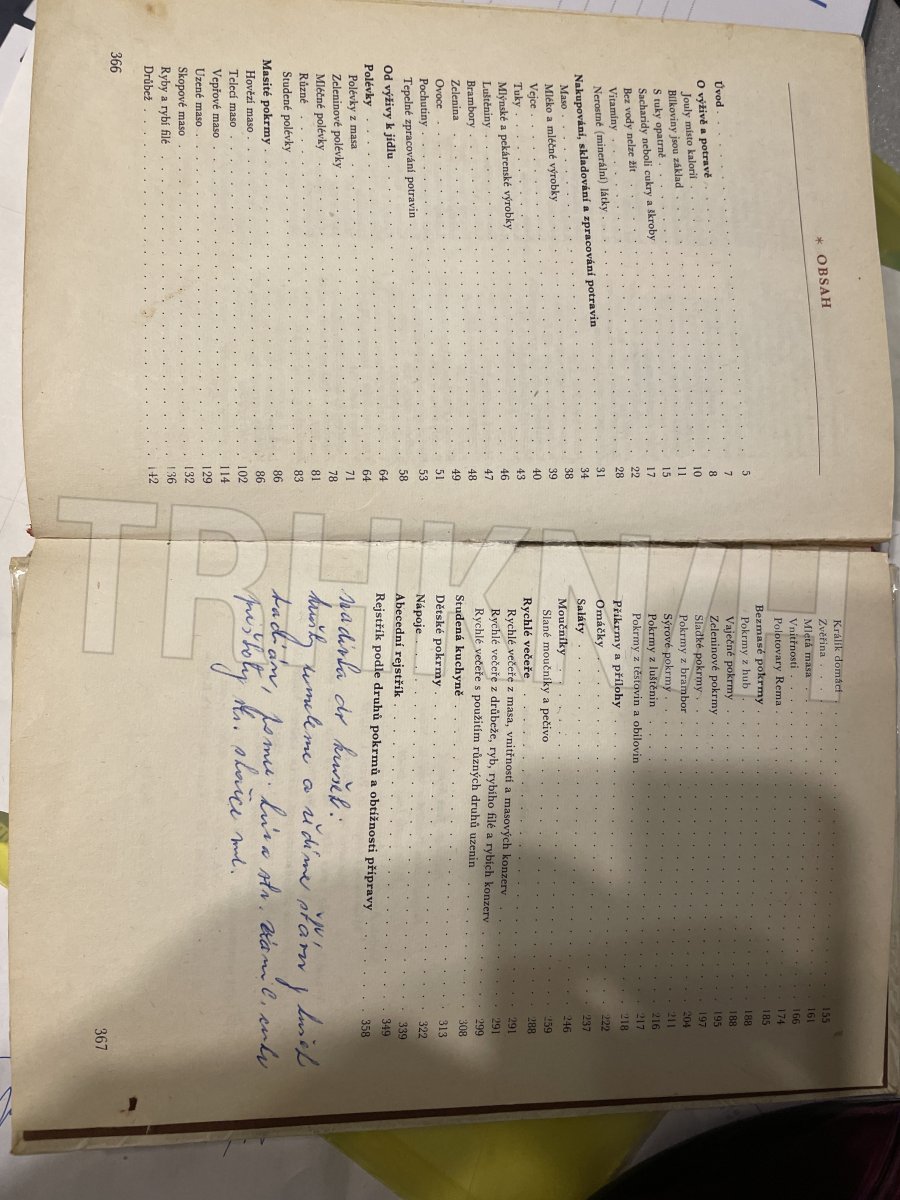 * OBSAH
Úvod 5
O výživě a potravě 7
Jouly místo kalorií 8
Bílkoviny jsou základ 10
S tuky opatrně 11
Sacharidy neboli cukry a škroby 15
Bez vody nelze žít 17
Vitamíny 22
Nerostné (minerální) látky 28
Nakupování, skladování a zpracování potravin 31
Maso 34
Mléko a mléčné výrobky 38
Vejce 39
Tuky 40
Mlýnské a pekárenské výrobky 43
Luštěniny 46
Brambory 47
Zelenina 48
Ovoce 49
Pochutiny 51
Tepelné zpracování potravin 53
Od výživy k jídlu 58
Polévky 64
Polévky z masa 64
Zeleninové polévky 71
Mléčné polévky 78
Různé 81
Studené polévky 83
Masité pokrmy 86
Hovězí maso 86
Telecí maso 102
Vepřové maso 114
Uzené maso 129
Skopové maso 132
Ryby a rybí filé 136
Drůbež 142
366
Králík domácí 155
Zvěřina 161
Mletá masa 166
Vnitřnosti 174
Polotovary Rema 185
Bezmasé pokrmy 188
Pokrmy z hub 188
Vaječné pokrmy 195
Zeleninové pokrmy 197
Sladké pokrmy 204
Pokrmy z brambor 211
Sýrové pokrmy 216
Pokrmy z luštěnin 217
Pokrmy z těstovin a obilovin 218
Příkrmy a přílohy 222
Omáčky 237
Saláty 246
Moučníky 259
Slané moučníky a pečivo 288
Rychlé večeře 291
Rychlé večeře z masa, vnitřností a masových konzerv 291
Rychlé večeře z drůbeže, ryb, rybího filé a rybích konzerv 299
Rychlé večeře s použitím různých druhů uzenin 308
Studená kuchyně 313
Dětské pokrmy 322
Nápoje 339
Abecední rejstřík 349
Rejstřík podle druhů pokrmů a obtížnosti přípravy 358
nadinka do hrušek:
hrušky umeleme a
367
TRHKNIH